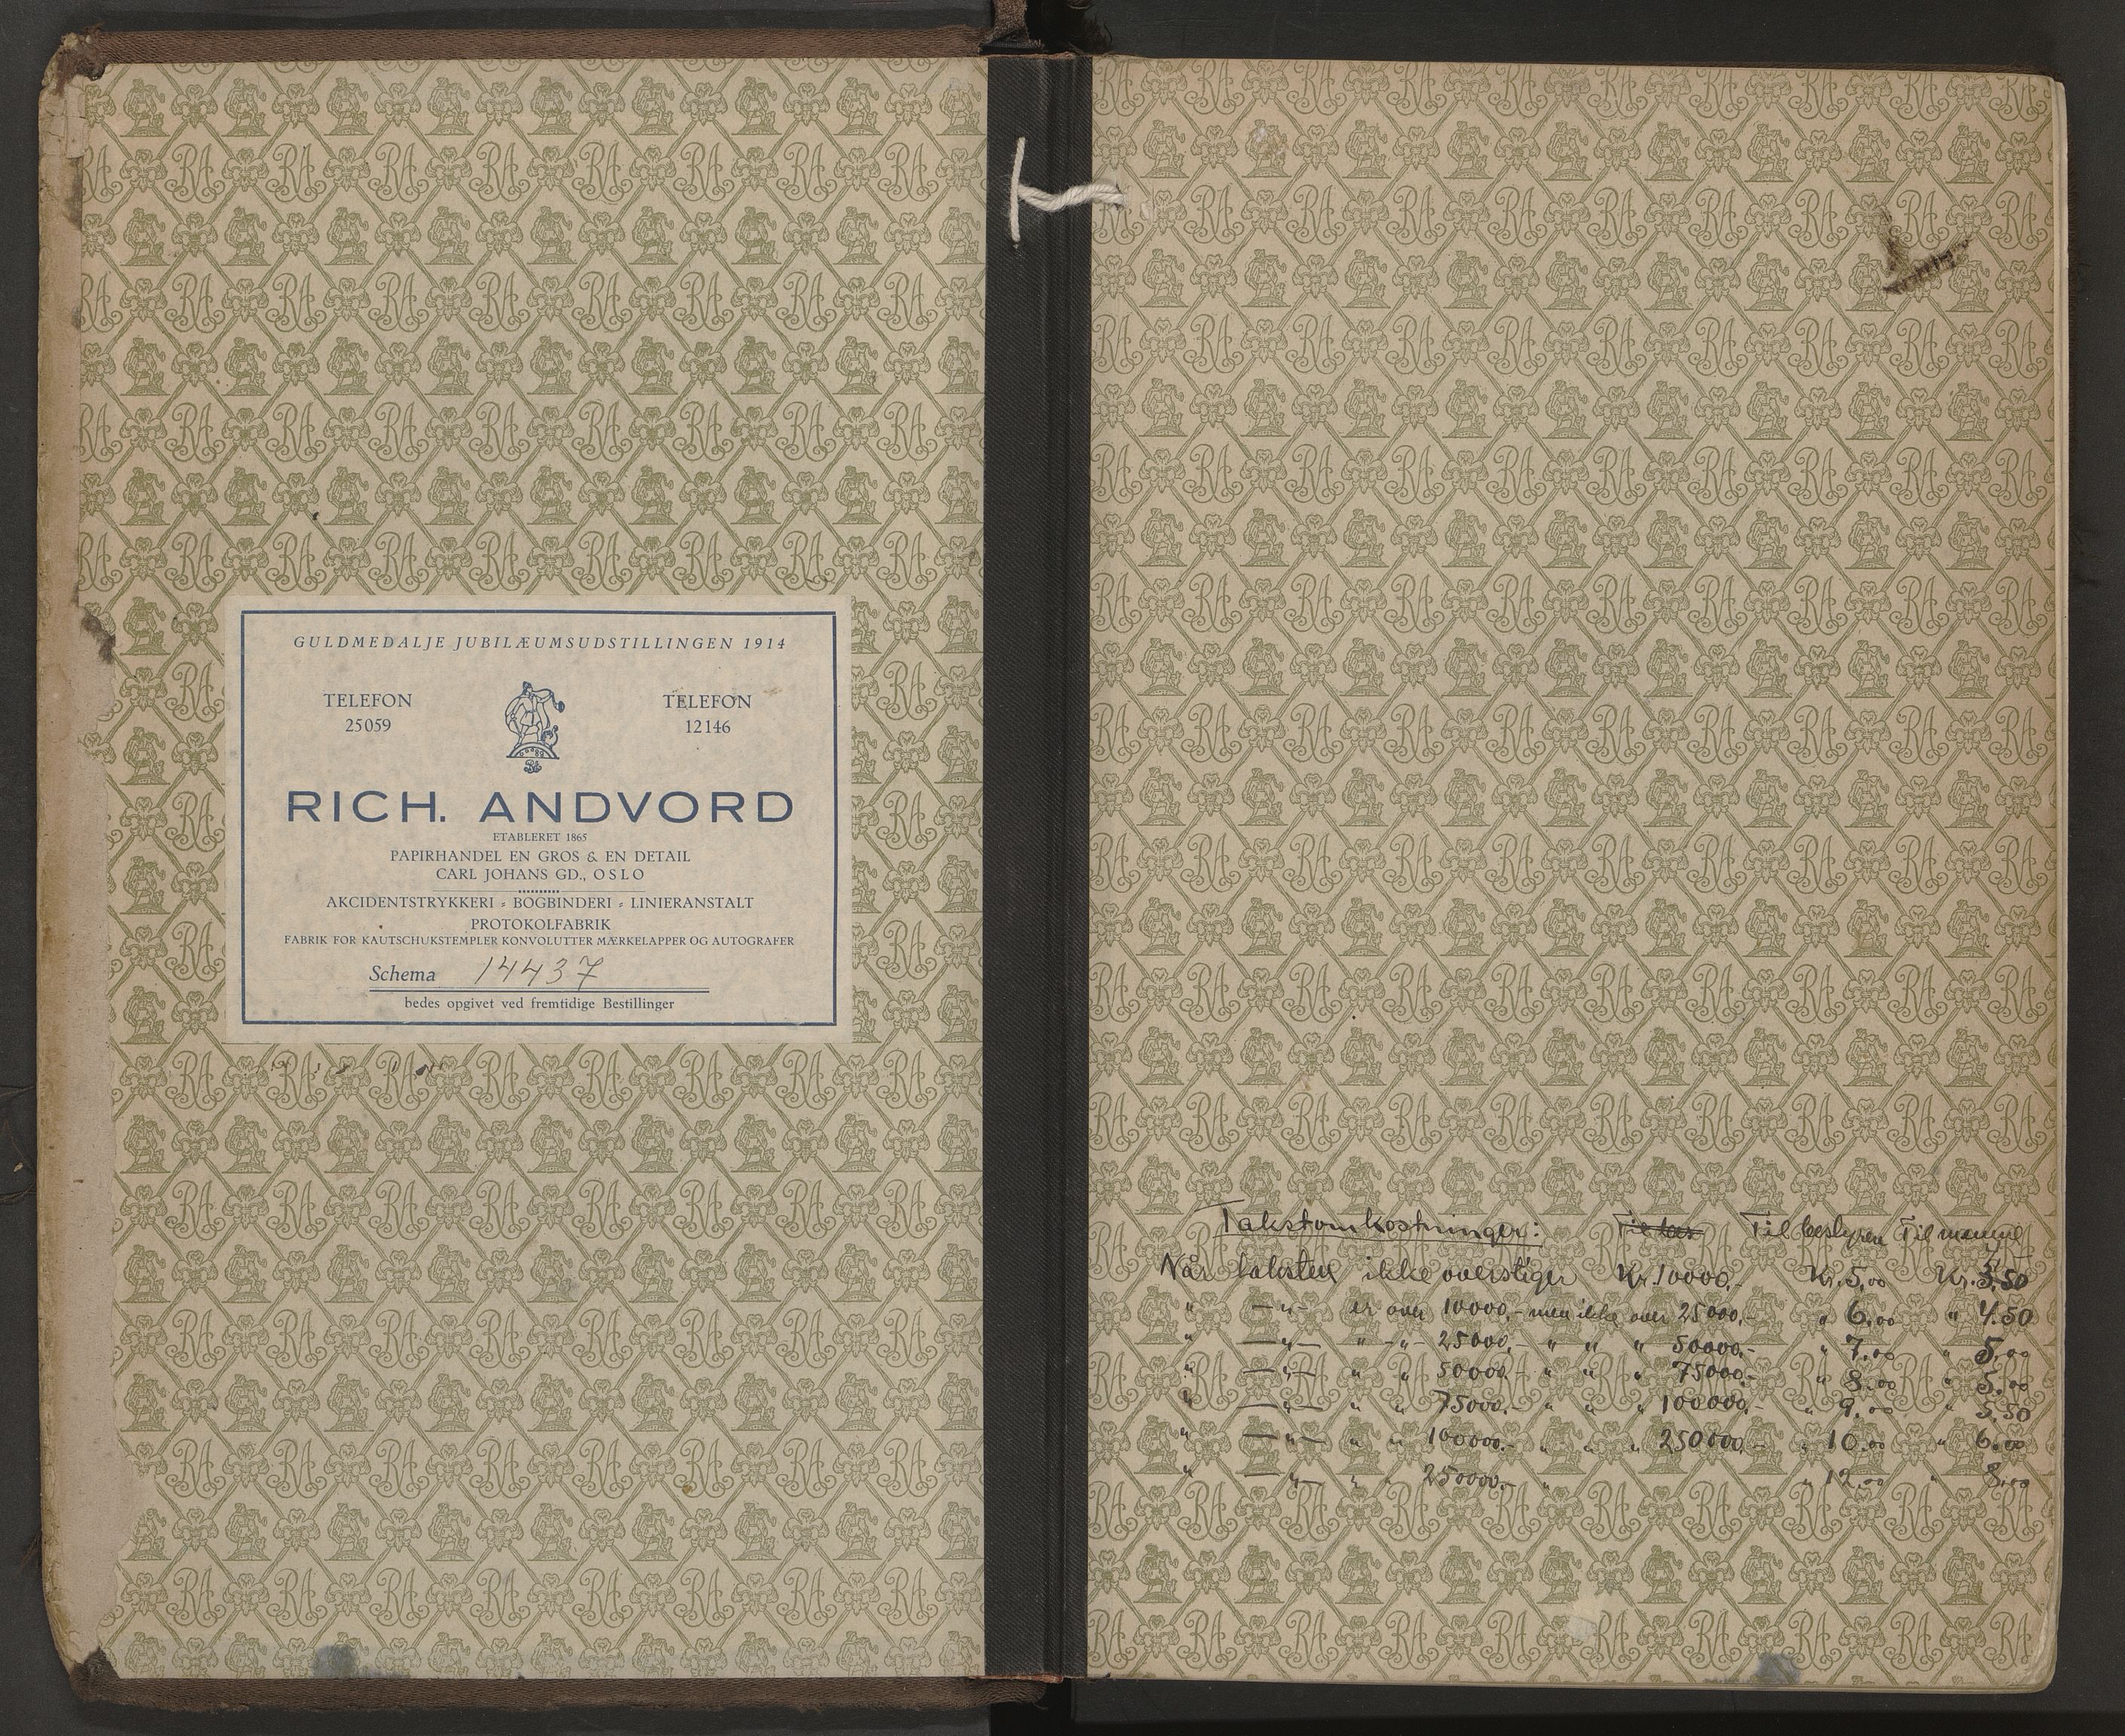 GULDMEDALJE JUBILÆUMSUDSTILLINGEN 1914
TELEFON TELEFON
25059 12146
RICH. ANDVORD
ETABLERET 1865
PAPIRHANDEL EN GROS & EN DETAIL
CARL JOHANS GD., OSLO
AKCIDENTSTRYKKERI - BOGBINDERI - LINIERANSTALT
PROTOKOLFABRIK
FABRIK FOR KAUTSCHUKSTEMPLER KONVOLUTTER MÆRKELAPPER OG AUTOGRAFER
Schema 14437
bedes opgivet ved fremtidige Bestillinger
Takstomkostninger: Til bestyrer Til mænd
Når taksten ikke overstiger Kr. 10000,- Kr. 5,00 Kr. 3,50
" —"— er over 10000,- men ikke over 25000,- " 6,00 " 4.50
" —"— " -"- 25000,- " " " 50000,- " 7,00 " 5,00
" —"— " " 50000,- " " " 75000,- " 8,00 " 5,00
" —"— " " 75000,- " " " 100000,- " 9,00 " 5,50
" —"— " " 100000,- " " " 250000,- " 10,00 " 6,00
" —"— " " 250000,- " " 12,00 " 8,00